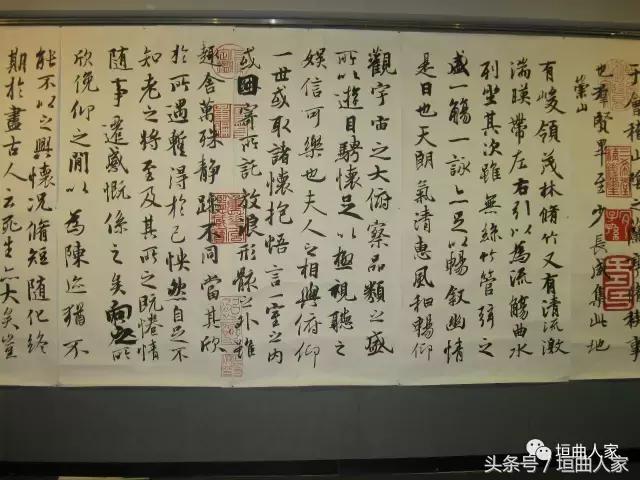 于會稽山陰之蘭亭脩稧事
也羣賢畢至少長咸集此地
崇山
有峻領茂林脩竹又有清流激
湍暎帶左右引以為流觴曲水
列坐其次雖無絲竹管弦之
盛一觴一詠亦足以暢敘幽情
是日也天朗氣清惠風和暢仰
觀宇宙之大俯察品類之盛
所以遊目騁懷足以極視聽之
娛信可樂也夫人之相與俯仰
一世或取諸懷抱悟言一室之內
或因寄所託放浪形骸之外雖
趣舍萬殊静躁不同當其欣
於所遇暫得於己怏然自足不
知老之將至及其所之既惓情
隨事遷感慨係之矣向之所
欣俛仰之閒以為陳迹猶不
能不以之興懷況脩短隨化終
期於盡古人云死生亦大矣豈
垣曲人家
头条号/垣曲人家